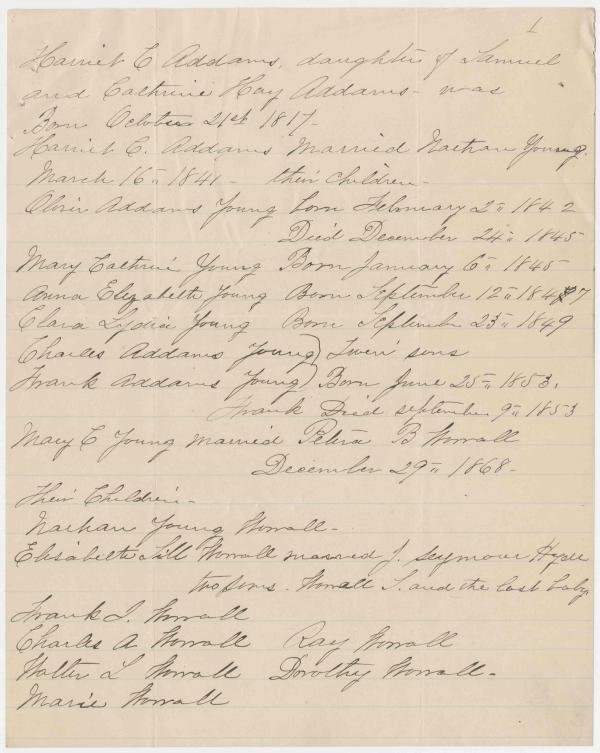 1
Harriet C Addams, daughter of Samuel
and Cathrine Hay Addams - was
Born October 21st 1817 -
Harriet C. Addams Married Nathan Young.
March 16" 1841 - their Children -
Oliver Addams Young born February 2" 1842
Died December 24" 1845
Mary Cathrine Young Born January 6" 1845
Anna Elizabeth Young Born September 12" 1847
Clara Lydia Young Born September 23" 1849
Charles Addams Young) Twin sons
Frank Addams Young) Born June 25" 1853.
Frank Died september 9" 1853
Mary C Young married B Worrall
December 29" 1868 -
Their Children -
Nathan Young Worrall -
Elisabeth Worrall married J. Seymour
two sons. Worrall S. and the last baby
Frank J. Worrall
Charles A Worrall Ray Worrall
Walter L Worrall Dorothy Worrall -
Marie Worrall